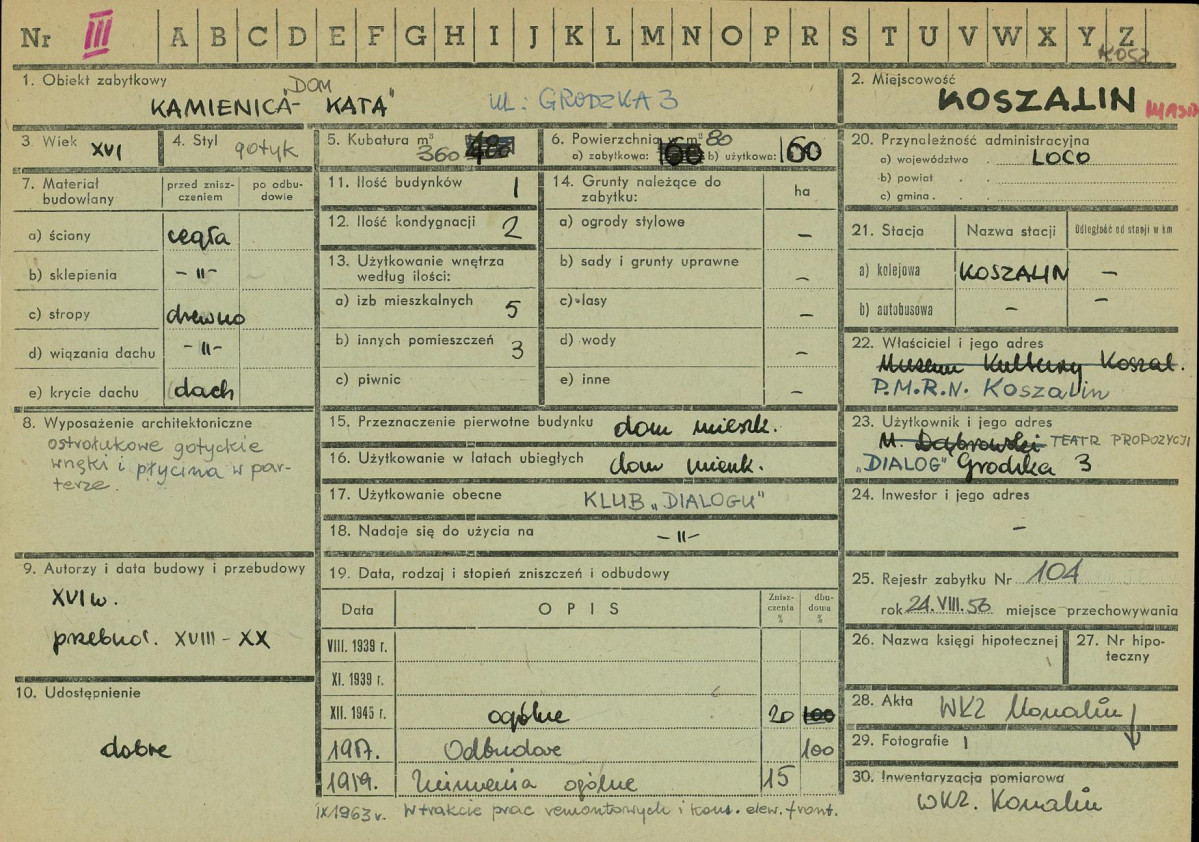 Nr III A B C D E F G H I J K L M N O P R S T U V W X Y Z
KOSZ
1. Obiekt zabytkowy
KAMIENICA - "DOM KATA" UL: GRODZKA 3
2. Miejscowość
KOSZALIN MIASTO
3. Wiek XVI
4. Styl gotyk
5. Kubatura m³ 360 480
6. Powierzchnia w m² 80
a) zabytkowa: 160 b) użytkowa: 160
20. Przynależność administracyjna
a) województwo LOCO
b) powiat
c) gmina
7. Materiał budowlany
przed znisz-
czeniem
po odbu-
dowie
a) ściany cegła
b) sklepienia -"-
c) stropy drewno
d) wiązania dachu -"-
e) krycie dachu dach
11. Ilość budynków 1
12. Ilość kondygnacji 2
13. Użytkowanie wnętrza
według ilości:
a) izb mieszkalnych 5
b) innych pomieszczeń 3
c) piwnic
14. Grunty należące do
zabytku: ha
a) ogrody stylowe –
b) sady i grunty uprawne –
c) lasy –
d) wody –
e) inne –
21. Stacja Nazwa stacji Odległość od stacji w km
a) kolejowa KOSZALIN –
b) autobusowa – –
22. Właściciel i jego adres
Muzeum Kultury Koszal.
P.M.R.N. Koszalin
8. Wyposażenie architektoniczne
ostrołukowe gotyckie
wnęki i płycina w par-
terze.
15. Przeznaczenie pierwotne budynku dom mieszk.
16. Użytkowanie w latach ubiegłych dom mieszk.
17. Użytkowanie obecne KLUB „DIALOGU"
18. Nadaje się do użycia na -"-
23. Użytkownik i jego adres
M. Dąbrowski TEATR PROPOZYCJI
„DIALOG" Grodzka 3
24. Inwestor i jego adres
–
9. Autorzy i data budowy i przebudowy
XVI w.
przebud. XVIII - XX
10. Udostępnienie
dobre
19. Data, rodzaj i stopień zniszczeń i odbudowy
Data OPIS Znisz-
czenia
% dbu-
dowa
%
VIII. 1939 r.
XI. 1939 r.
XII. 1945 r. ogólne 20 100
1957. Odbudowa 100
1959. Zniszczenia ogólne 15
IX 1963 r. W trakcie prac remontowych i kons. elew. front.
25. Rejestr zabytku Nr 104
rok 24.VIII.56 miejsce przechowywania
26. Nazwa księgi hipotecznej
27. Nr hipo-
teczny
28. Akta WKZ Koszalin
29. Fotografie 1
30. Inwentaryzacja pomiarowa
WKZ. Koszalin